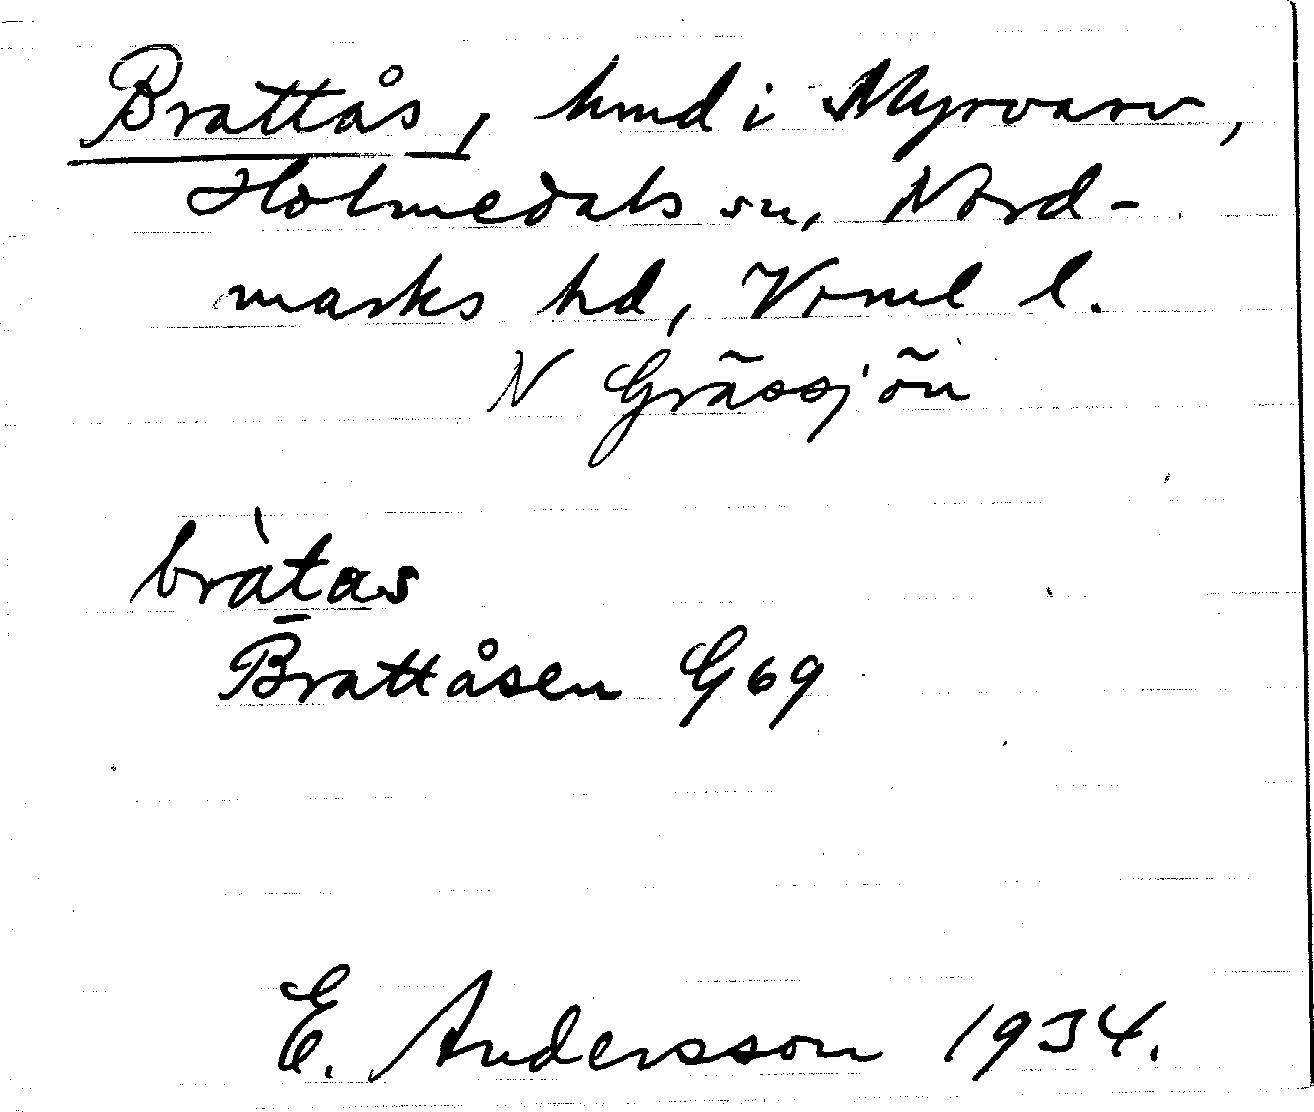 Brattås, hmd i Myrvarv,
Holmedals sn, Nord-
marks hd, Vrml l.
N Grässjön
bràtas
Brattåsen G69
E. Andersson 1934.